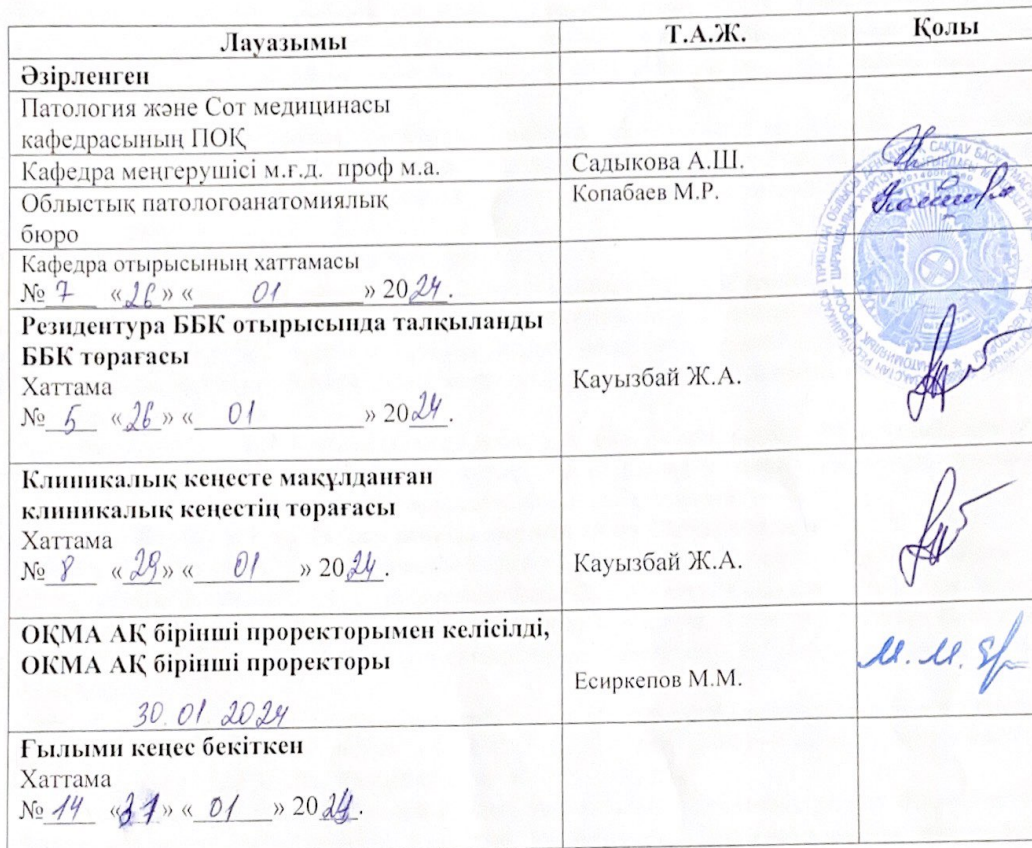 Лауазымы Т.А.Ж. Қолы
Әзірленген
Патология және Сот медицинасы
кафедрасының ПОҚ
Кафедра меңгерушісі м.ғ.д. проф м.а. Садыкова А.Ш.
Облыстық патологоанатомиялық Копабаев М.Р.
бюро
Кафедра отырысының хаттамасы
№ 7 «26» «01» 2024.
Резидентура ББК отырысында талқыланды
ББК төрағасы
Хаттама Кауызбай Ж.А.
№ 5 «26» «01» 2024.
Клиникалық кеңесте мақұлданған
клиникалық кеңестің төрағасы
Хаттама
№ 8 «29» «01» 2024. Кауызбай Ж.А.
ОҚМА АҚ бірінші проректорымен келісілді,
ОКМА АҚ бірінші проректоры
Есиркепов М.М.
30.01 2024
Ғылыми кеңес бекіткен
Хаттама
№ 14 «31» «01» 2024.